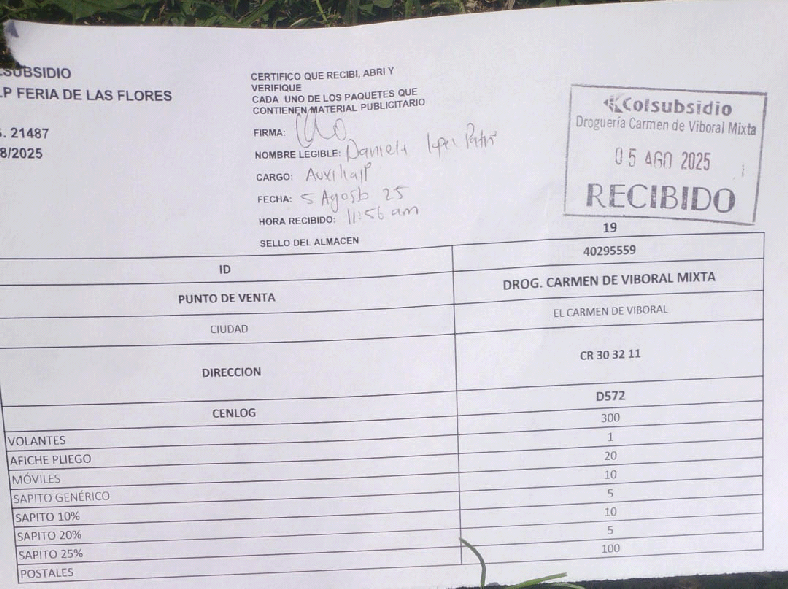 SUBSIDIO
LP FERIA DE LAS FLORES
S. 21487
8/2025
CERTIFICO QUE RECIBI, ABRI Y
VERIFIQUE
CADA UNO DE LOS PAQUETES QUE
CONTIENEN MATERIAL PUBLICITARIO
FIRMA:
NOMBRE LEGIBLE: Daniela
CARGO: Auxiliar
FECHA: 5 Agosto 25
HORA RECIBIDO: 11:56 am
SELLO DEL ALMACEN
Colsubsidio
Droguería Carmen de Viboral Mixta
05 AGO 2025
RECIBIDO
19
ID 40295559
PUNTO DE VENTA DROG. CARMEN DE VIBORAL MIXTA
CIUDAD EL CARMEN DE VIBORAL
DIRECCION CR 30 32 11
CENLOG D572
VOLANTES 300
AFICHE PLIEGO 1
MÓVILES 20
SAPITO GENÉRICO 10
SAPITO 10% 5
SAPITO 20% 10
SAPITO 25% 5
POSTALES 100